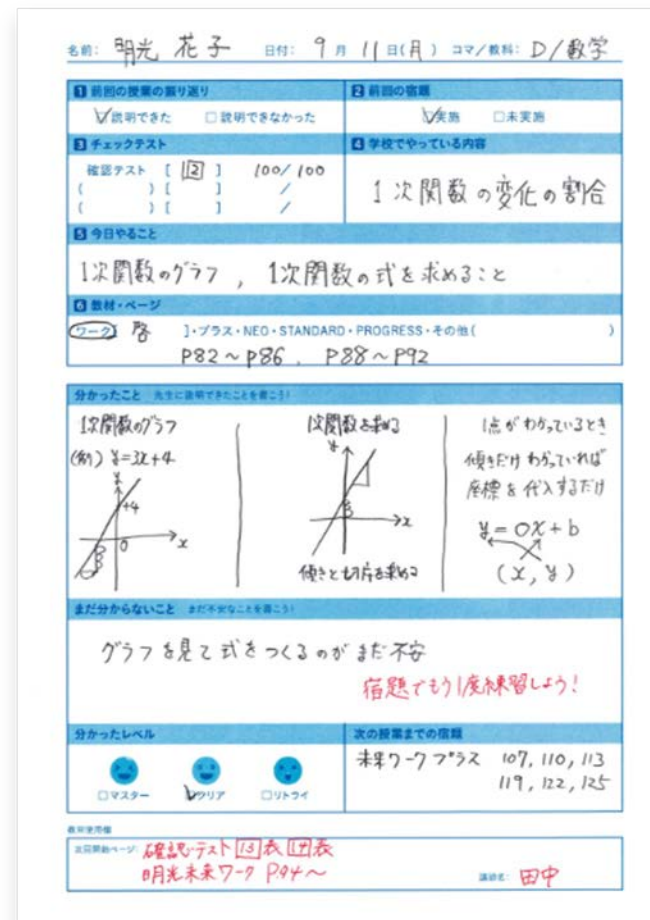 名前: 明光 花子 日付: 9 月 11 日(月) コマ/教科: D/数学
1 前回の授業の振り返り
2 前回の宿題
☑説明できた □説明できなかった
☑実施 □未実施
3 チェックテスト
4 学校でやっている内容
確認テスト [ 12 ] 100/100
( ) [ ] /
( ) [ ] /
1次関数の変化の割合
5 今日やること
1次関数のグラフ, 1次関数の式を求めること
6 教材・ページ
ワーク[ 啓 ]・プラス・NEO・STANDARD・PROGRESS・その他( )
P82~P86, P88~P92
分かったこと 先生に説明できたことを書こう!
1次関数のグラフ
(例) y=3x+4
y
+4
0
x
1次関数を求める
y
x
傾きと切片を求める
1点がわかっているとき
傾きだけわかっていれば
座標を代入するだけ
y=○x+b
(x, y)
まだ分からないこと まだ不安なことを書こう!
グラフを見て式をつくるのがまだ不安
宿題でもう1度練習しよう!
分かったレベル
□マスター ☑クリア □リトライ
次の授業までの宿題
未来ワークプラス 107, 110, 113
119, 122, 125
教室使用欄
次回開始ページ: 確認テスト 13 表 14 表
明光未来ワーク P.94~
講師名: 田中